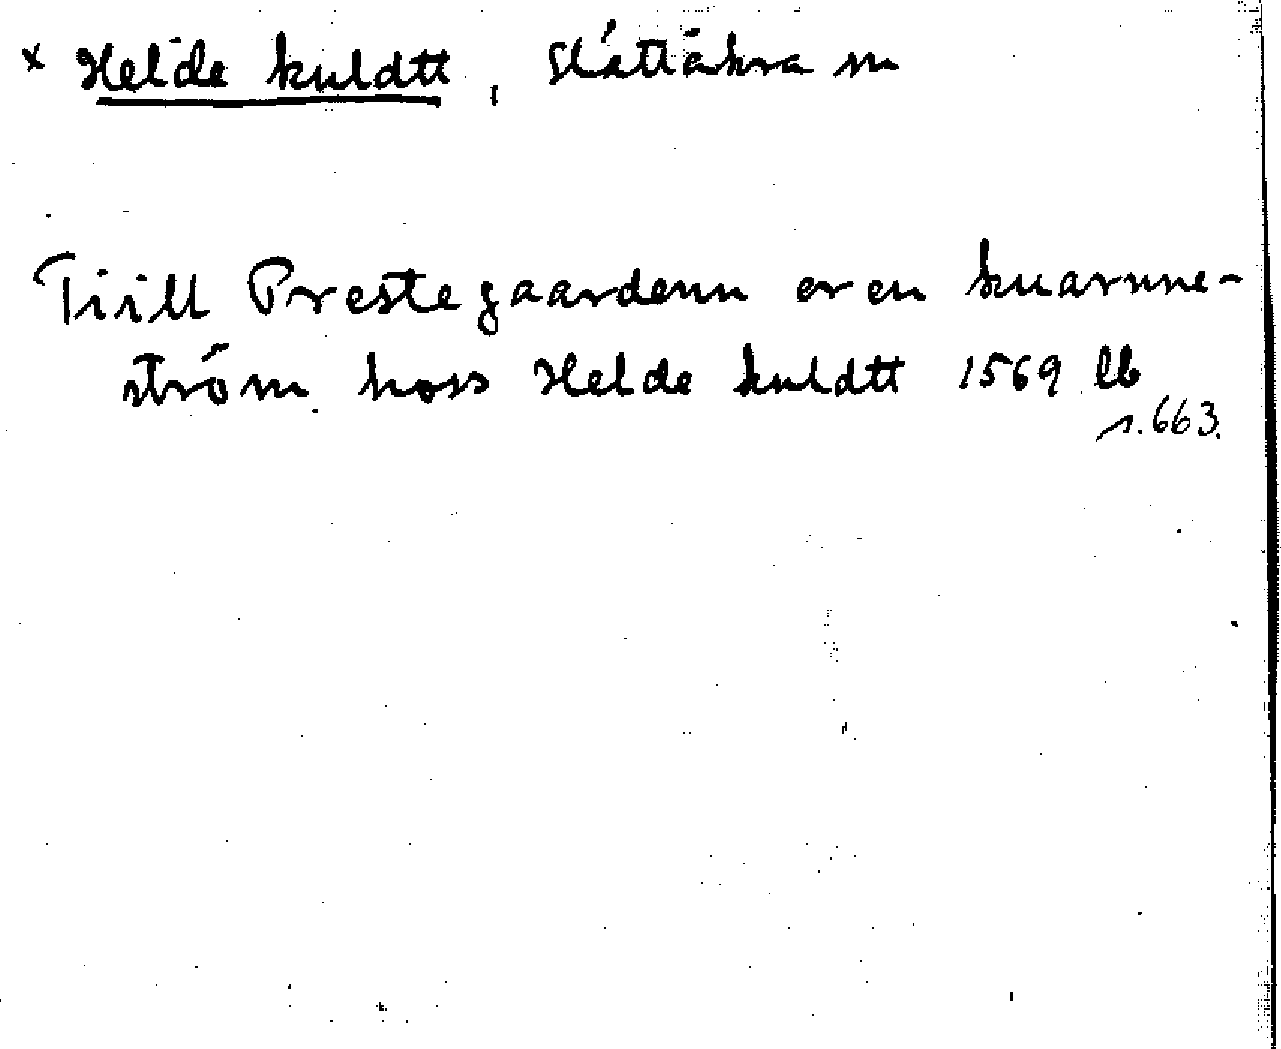 x Helde kuldtt, Slättåkra sn
Tiill Prestegaardenn er en kuarnne-
ström hoss Helde kuldtt 1569 lb
s. 663.